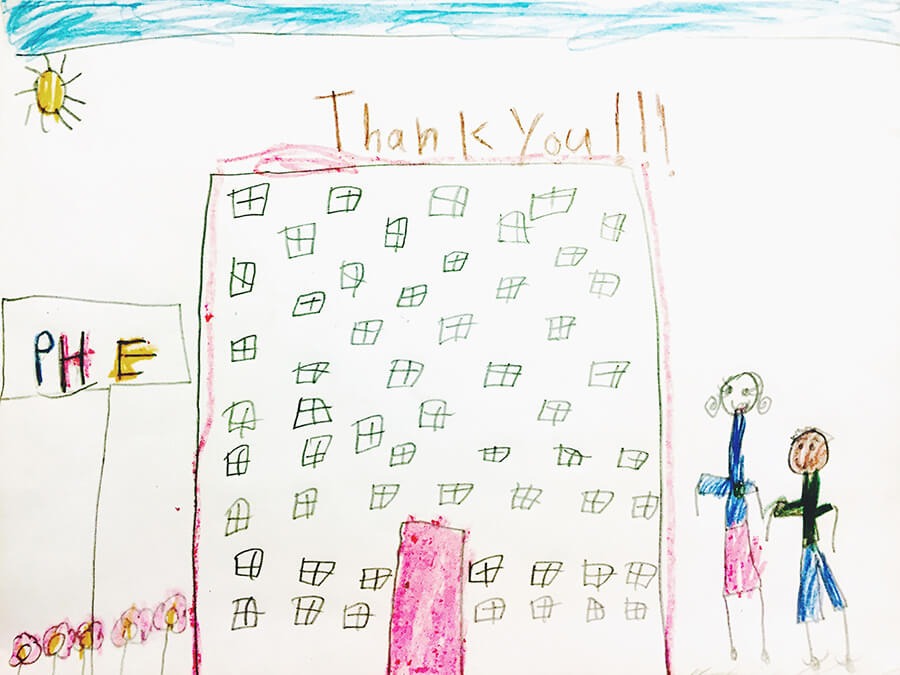 Thank You!!!
PHE